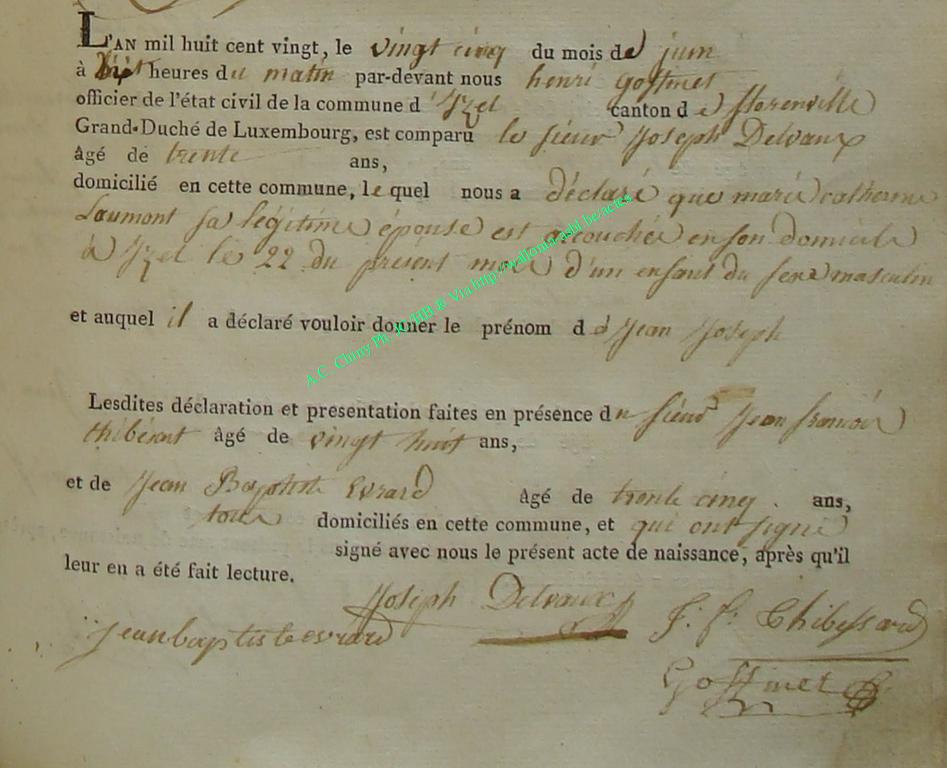 L'AN mil huit cent vingt, le vingt cinq du mois de juin
à huit heures du matin par-devant nous henri Goffinet
officier de l'état civil de la commune d'Izel canton de florenville
Grand-Duché de Luxembourg, est comparu le sieur Joseph Delvaux
âgé de trente ans,
domicilié en cette commune, lequel nous a déclaré que marie catherine
Laumont sa légitime épouse est accouchée en son domicile
à Izel le 22 du présent mois d'un enfant du sexe masculin
et auquel il a déclaré vouloir donner le prénom de Jean Joseph
Lesdites déclaration et presentation faites en présence du sieur Jean francois
thibésart âgé de vingt huit ans,
et de Jean Baptiste Evrard âgé de trente cinq ans,
tous domiciliés en cette commune, et qui ont signé
signé avec nous le présent acte de naissance, après qu'il
leur en a été fait lecture.
Joseph Delvaux J. f. Thibessard
jean baptiste evrard
Goffinet